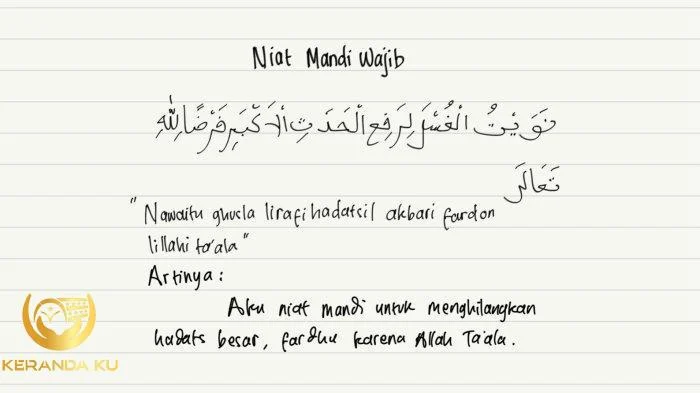 Niat Mandi Wajib
نَوَيْتُ الْغُسْلَ لِرَفِعِ الْحَدَثِ اْلاَكْبَرِ فَرْضًا لِلّٰهِ
تَعَالَى
"Nawaitu ghusla lirafi hadatsil akbari fardon
lillahi ta'ala"
Artinya:
Aku niat mandi untuk menghilangkan
hadats besar, fardhu karena Allah Ta'ala.
KERANDA KU